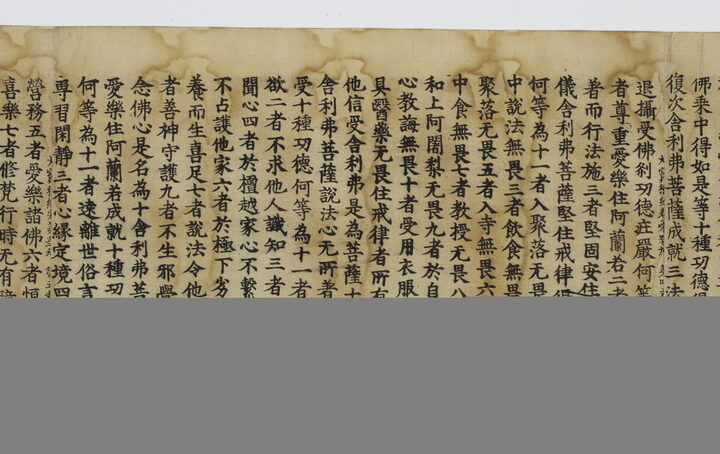 佛乘中得如是等十種功德
復次舍利弗菩薩成就三法
退攝受佛剎功德莊嚴何等
者尊重愛樂住阿蘭若二者
著而行法施三者堅固安住
儀舍利弗菩薩堅住戒律得
何等為十一者入聚落无畏
中說法無畏三者飲食無畏
聚落无畏五者入寺無畏六
中食無畏七者教授无畏八
和上阿闍梨无畏九者於自
心教誨無畏十者受用衣服
具醫藥无畏住戒律者所有
他信受舍利弗是為菩薩十
舍利弗菩薩說法心无所著
受十種功德何等為十一者
欲二者不求他人識知三者
聞心四者於檀越家心不繫
不占護他家六者於極下劣
養而生喜足七者說法令他
者善神守護九者不生邪覺
念佛心是名為十舍利弗菩
愛樂住阿蘭若成就十種功
何等為十一者遠離世俗言
專習閑靜三者心緣定境四
營務五者愛樂諸佛六者恒
喜樂七者修梵行時无有障